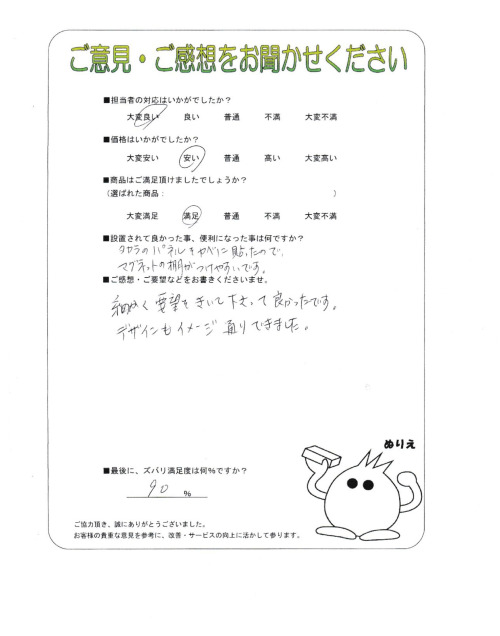 ご意見・ご感想をお聞かせください
■担当者の対応はいかがでしたか?
大変良い 良い 普通 不満 大変不満
■価格はいかがでしたか?
大変安い 安い 普通 高い 大変高い
■商品はご満足頂けましたでしょうか?
(選ばれた商品: )
大変満足 満足 普通 不満 大変不満
■設置されて良かった事、便利になった事は何ですか?
タカラのパネルをかべに貼ったので、
マグネットの棚がつけやすいです。
■ご感想・ご要望などをお書きくださいませ。
細かく要望をきいて下さって良かったです。
デザインもイメージ通りできました。
ぬりえ
■最後に、ズバリ満足度は何%ですか?
90 %
ご協力頂き、誠にありがとうございました。
お客様の貴重な意見を参考に、改善・サービスの向上に活かして参ります。